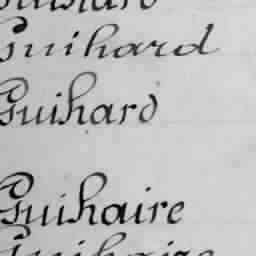 Guihard
Guihard
Guihaire